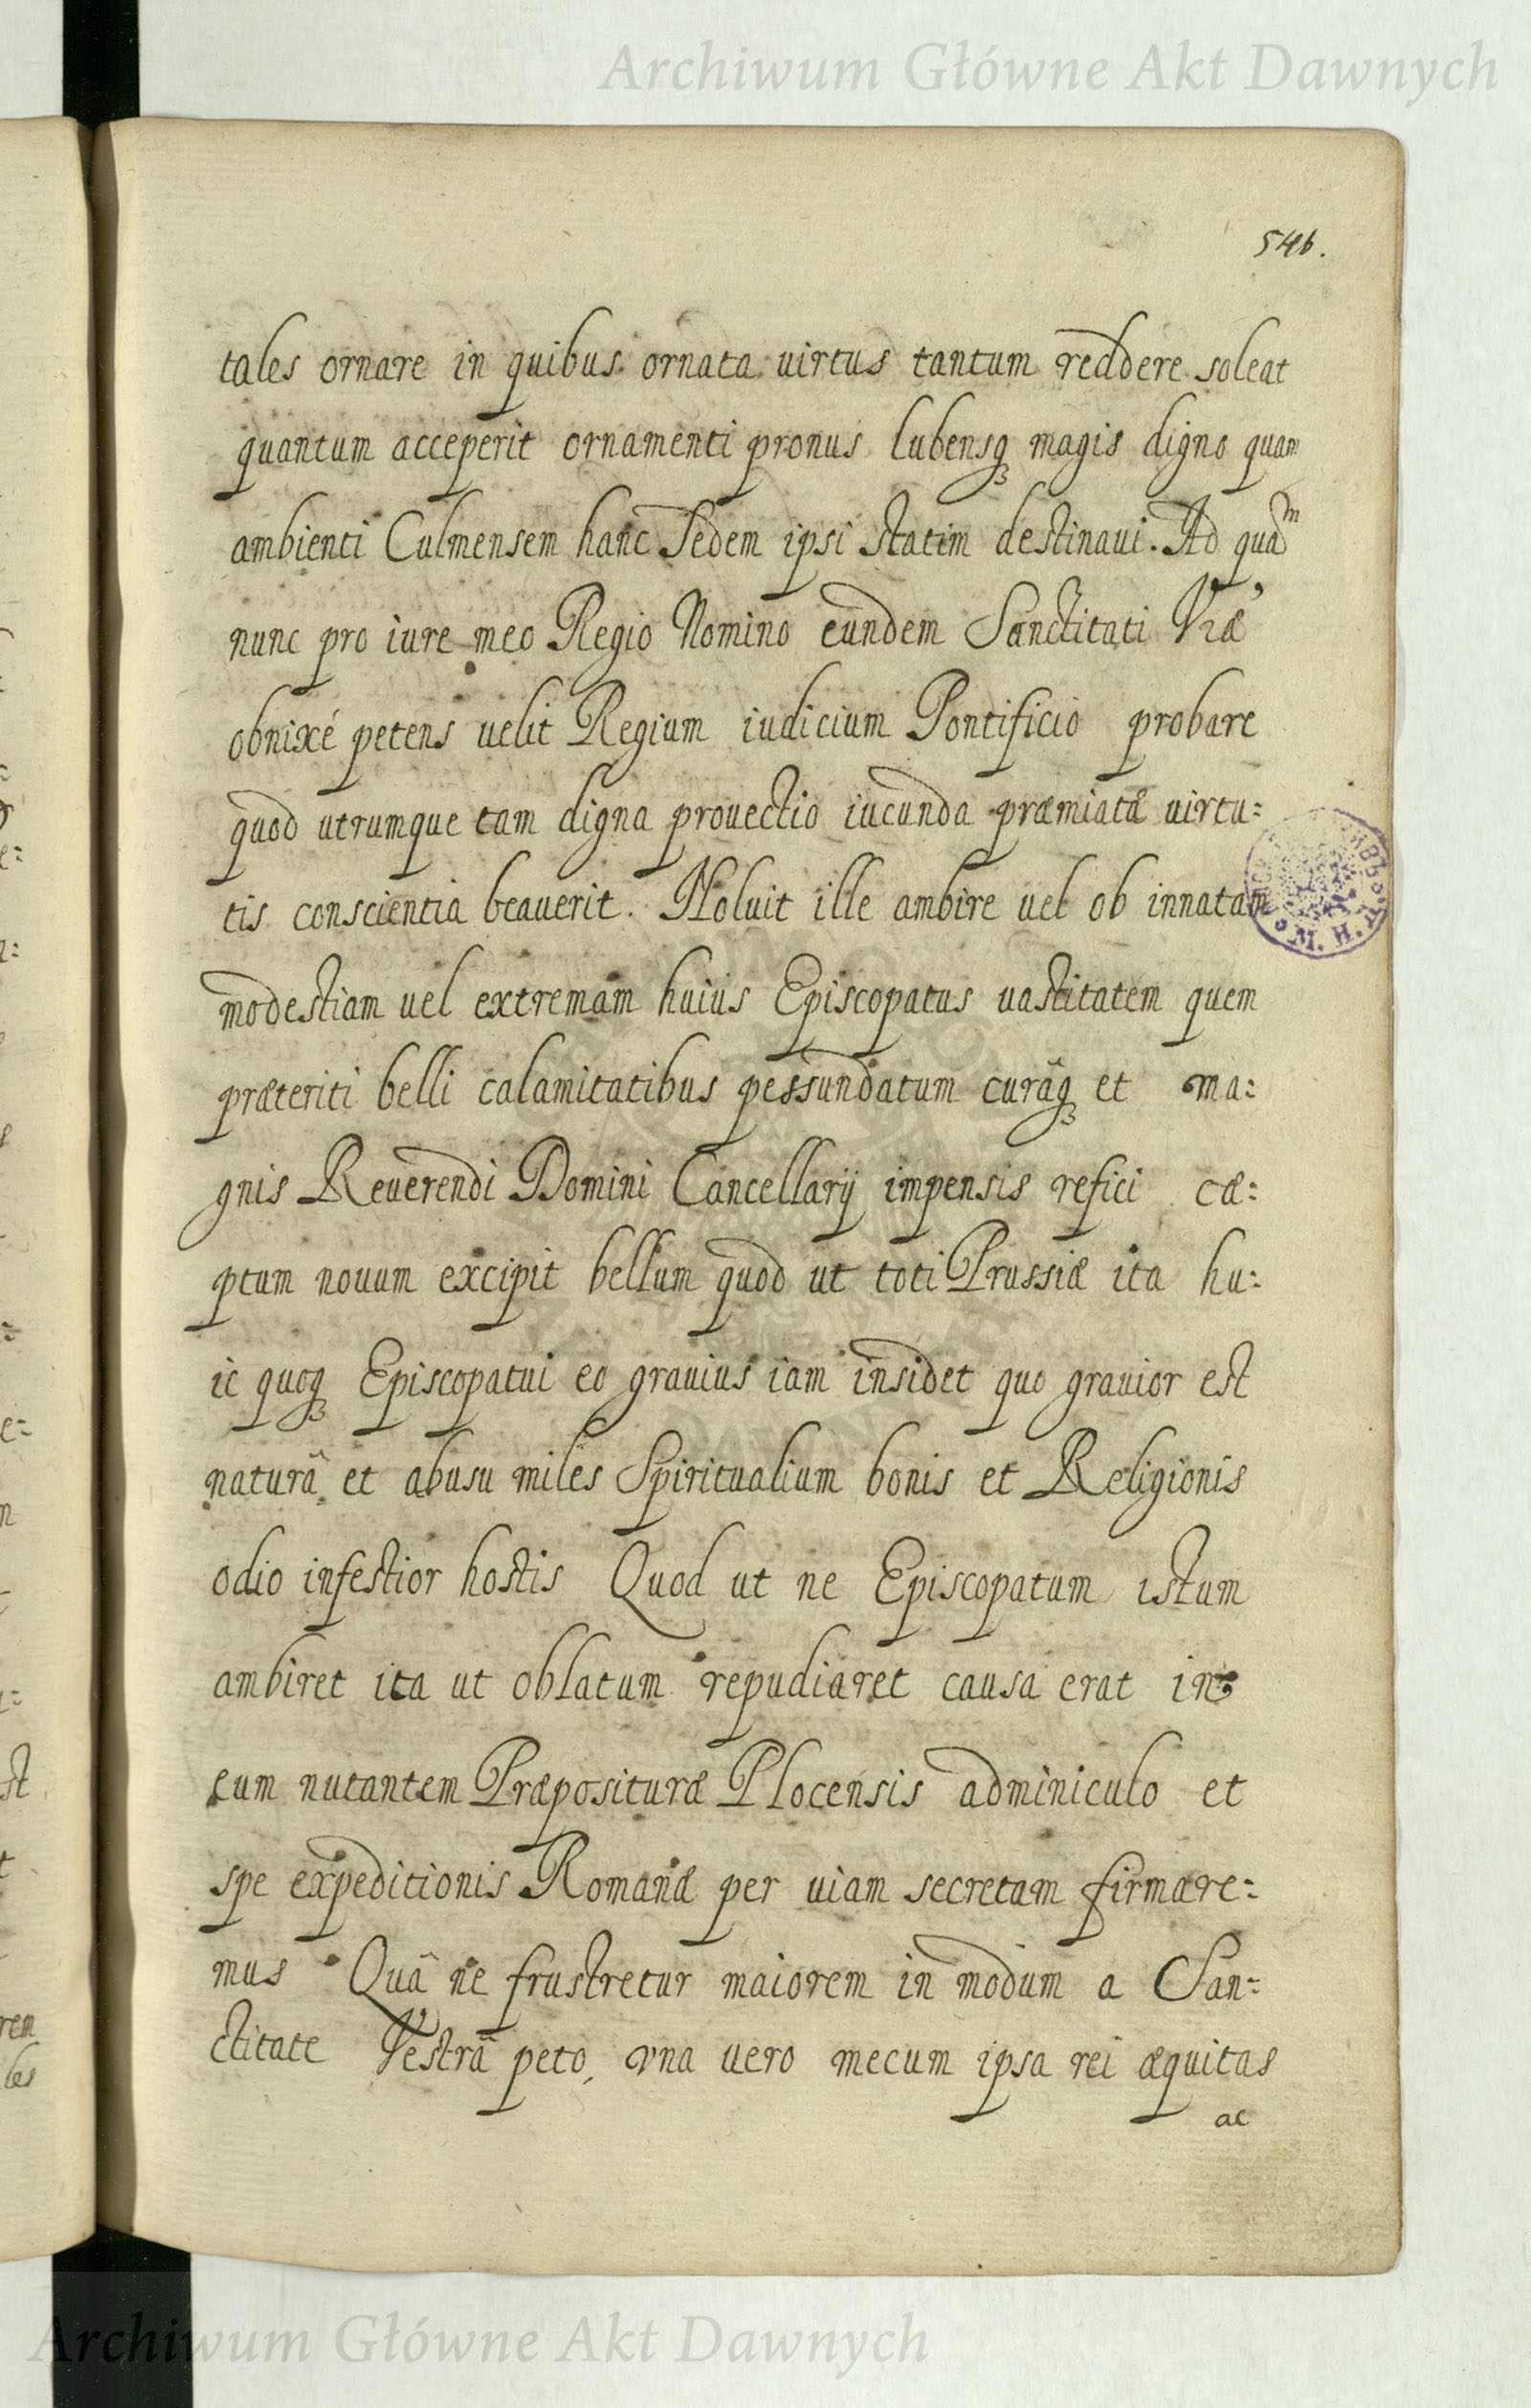 Archiwum Główne Akt Dawnych
546.
tales ornare in quibus ornata uirtus tantum reddere soleat
quantum acceperit ornamenti pronus lubensq3 magis digno quam
ambienti Culmensem hanc Sedem ipsi statim destinaui. Ad quam
nunc pro iure meo Regio Nomino eundem Sanctitati Vræ
obnixé petens uelit Regium iudicium Pontificio probare
quod utrumque tam digna prouectio iucunda præmiatæ uirtu:
tis conscientia beauerit. Noluit ille ambire uel ob innatam
modestiam uel extremam huius Episcopatus uastitatem quem
præteriti belli calamitatibus pessundatum curâq3 et ma:
gnis Reuerendi Domini Cancellarij impensis refici cæ:
ptum nouum excipit bellum quod ut toti Prussiæ ita hu:
ic quoq3 Episcopatui eo grauius iam insidet quo grauior est
naturâ et abusu miles Spiritualium bonis et Religionis
odio infestior hostis Quod ut ne Episcopatum istum
ambiret ita ut oblatum repudiaret causa erat in
eum nutantem Præposituræ Plocensis adminiculo et
spe expeditionis Romanæ per uiam secretam firmare:
mus Quâ ne frustretur maiorem in modum a San:
ctitate Vestrâ peto, vna uero mecum ipsa rei æquitas
ac
Archiwum Główne Akt Dawnych